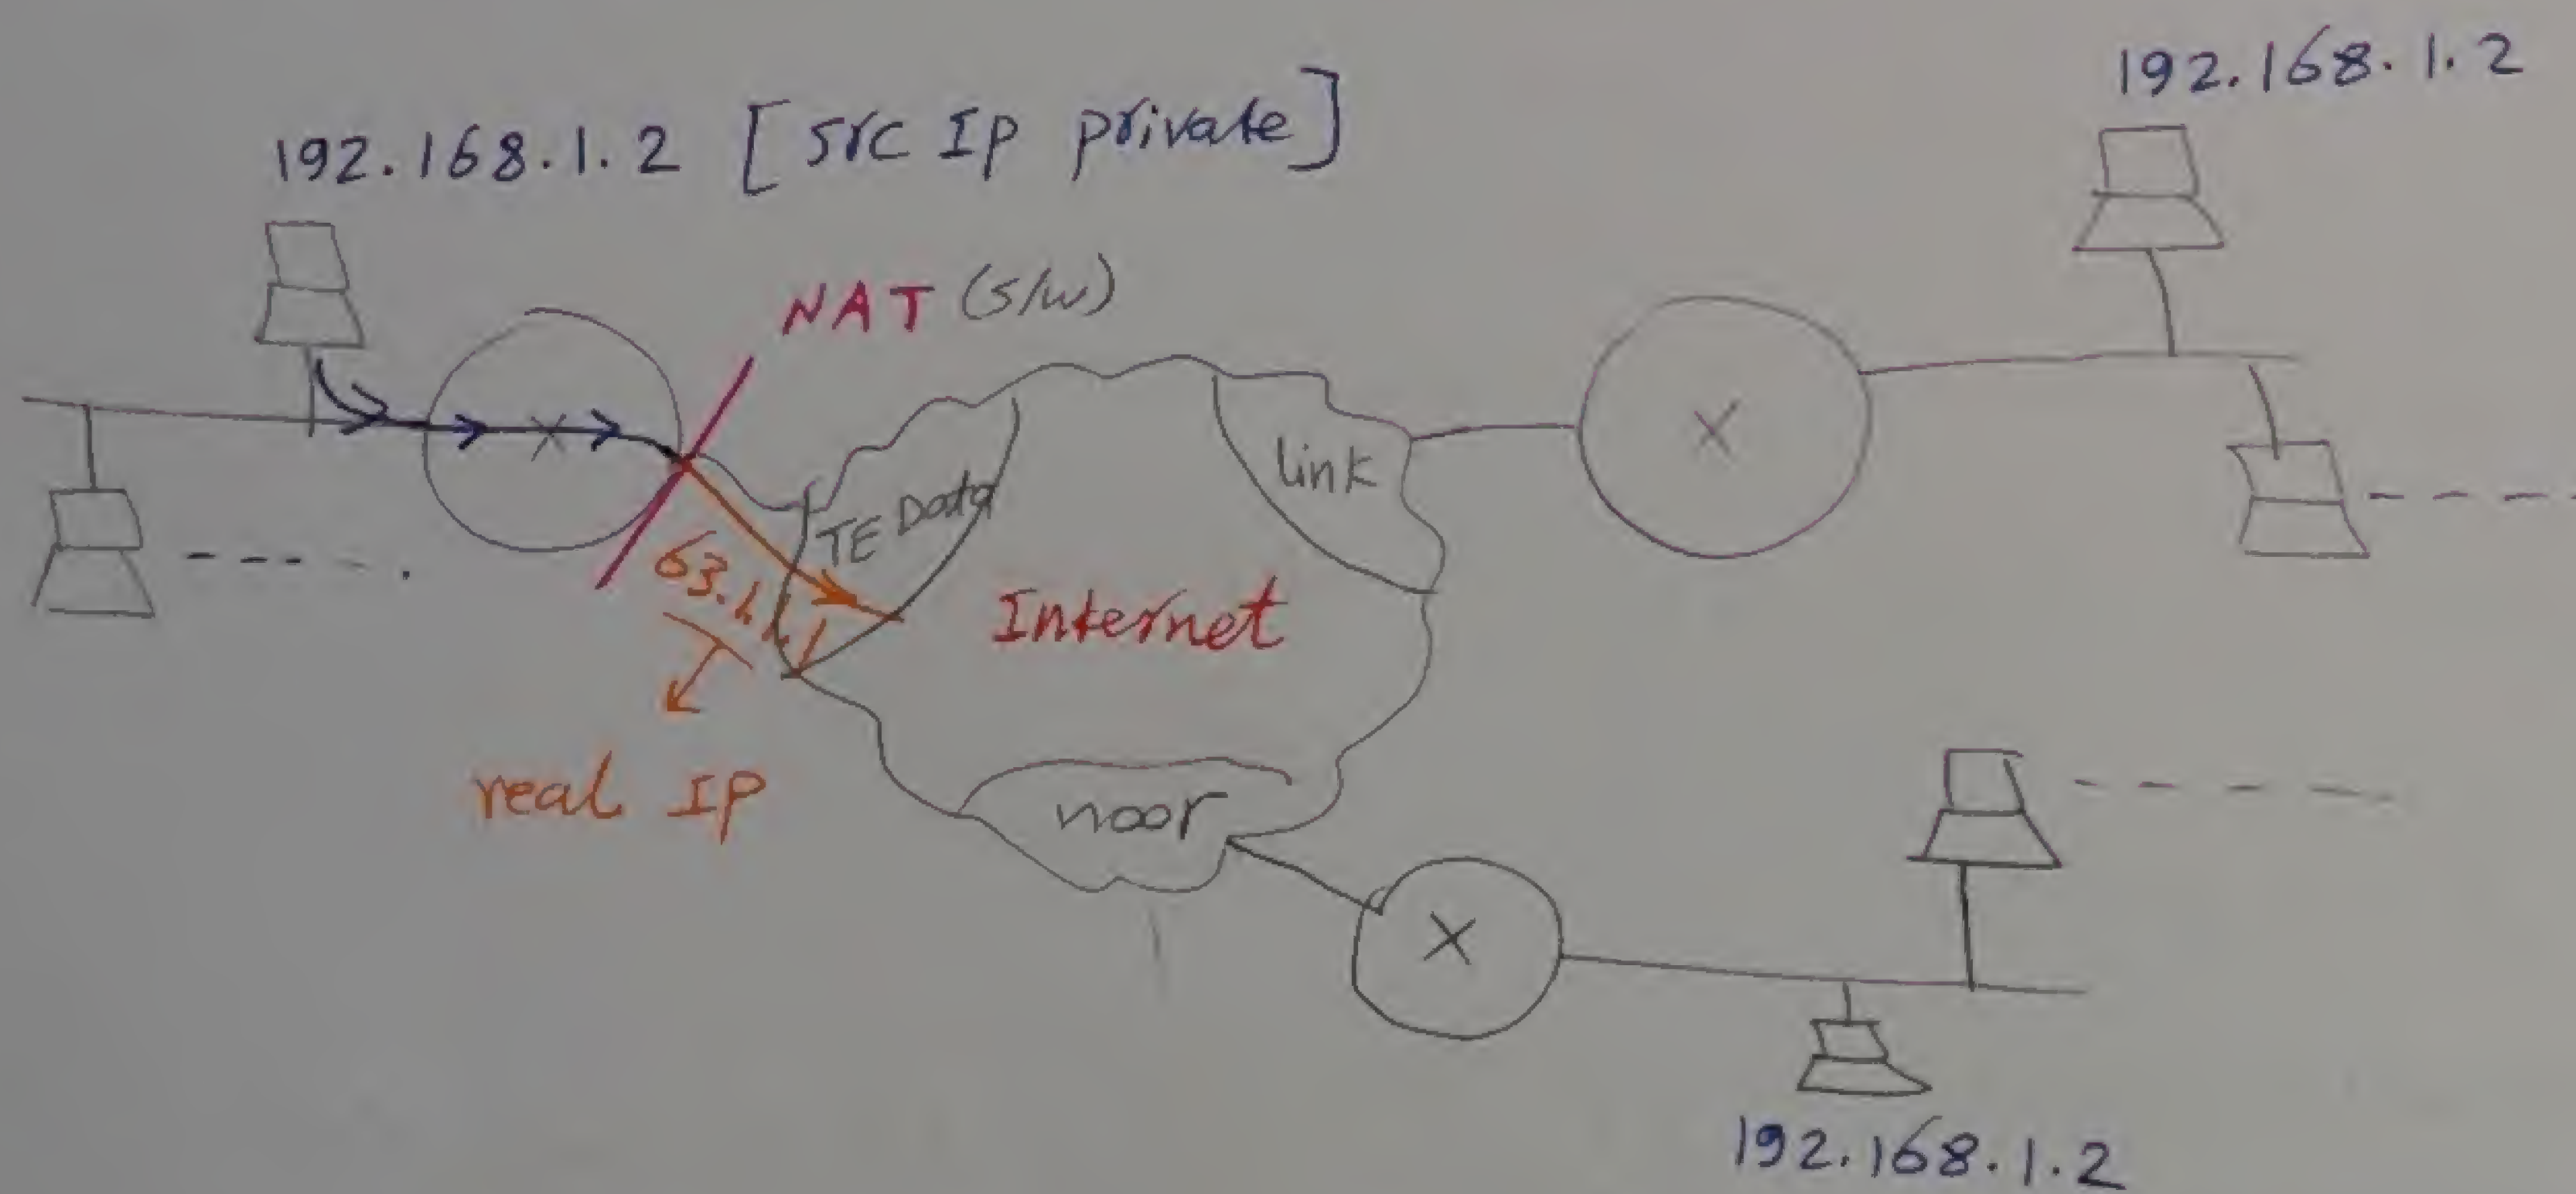 192.168.1.2 [src Ip private]
192.168.1.2
NAT (s/w)
TE Data
link
63.1.1.1
Internet
real IP
noor
192.168.1.2